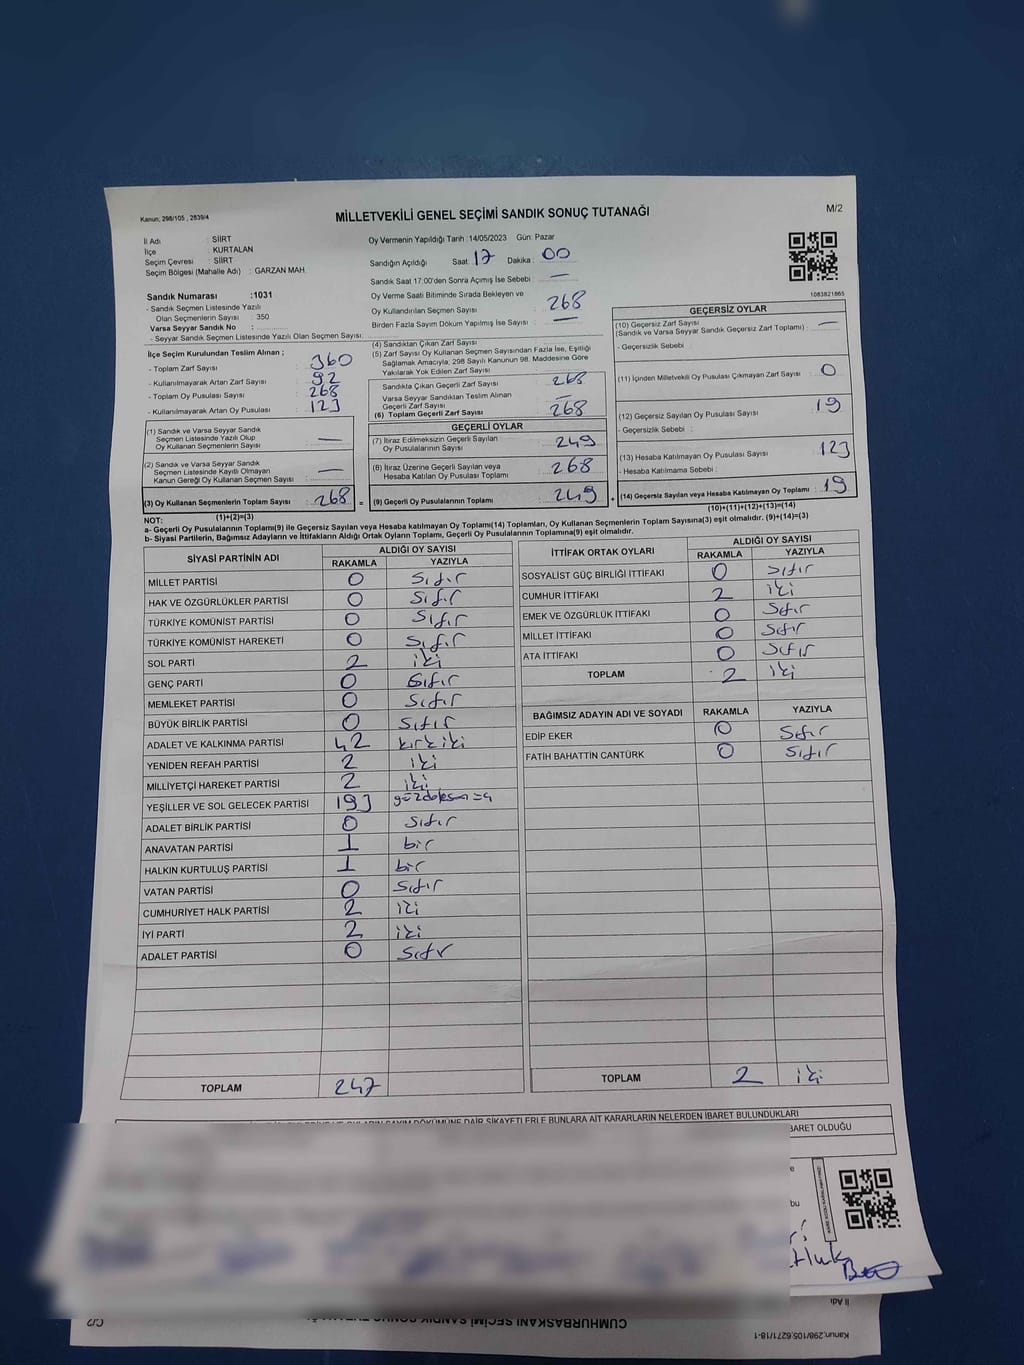 Kanun, 298/105 , 2839/4
MİLLETVEKİLİ GENEL SEÇİMİ SANDIK SONUÇ TUTANAĞI
M/2
İl Adı : SİİRT
İlçe : KURTALAN
Seçim Çevresi : SİİRT
Seçim Bölgesi (Mahalle Adı) : GARZAN MAH.
Oy Vermenin Yapıldığı Tarih :14/05/2023 Gün: Pazar
Sandığın Açıldığı Saat: 17 Dakika: 00
Sandık Saat 17:00'den Sonra Açılmış İse Sebebi : —
Oy Verme Saati Bitiminde Sırada Bekleyen ve
Oy Kullandırılan Seçmen Sayısı : 268
Birden Fazla Sayım Döküm Yapılmış İse Sayısı : —
1083821865
Sandık Numarası :1031
- Sandık Seçmen Listesinde Yazılı
Olan Seçmenlerin Sayısı : 350
Varsa Seyyar Sandık No :
- Seyyar Sandık Seçmen Listesinde Yazılı Olan Seçmen Sayısı:
İlçe Seçim Kurulundan Teslim Alınan ;
- Toplam Zarf Sayısı : 360
- Kullanılmayarak Artan Zarf Sayısı : 92
- Toplam Oy Pusulası Sayısı : 268
- Kullanılmayarak Artan Oy Pusulası : 123
(1) Sandık ve Varsa Seyyar Sandık
Seçmen Listesinde Yazılı Olup
Oy Kullanan Seçmenlerin Sayısı —
(2) Sandık ve Varsa Seyyar Sandık
Seçmen Listesinde Kayıtlı Olmayan
Kanun Gereği Oy Kullanan Seçmen Sayısı —
(3) Oy Kullanan Seçmenlerin Toplam Sayısı : 268
(1)+(2)=(3)
(4) Sandıktan Çıkan Zarf Sayısı
(5) Zarf Sayısı Oy Kullanan Seçmen Sayısından Fazla İse, Eşitliği
Sağlamak Amacıyla; 298 Sayılı Kanunun 98. Maddesine Göre
Yakılarak Yok Edilen Zarf Sayısı
Sandıkta Çıkan Geçerli Zarf Sayısı : 268
Varsa Seyyar Sandıktan Teslim Alınan
Geçerli Zarf Sayısı : —
(6) Toplam Geçerli Zarf Sayısı : 268
GEÇERLİ OYLAR
(7) İtiraz Edilmeksizin Geçerli Sayılan
Oy Pusulası Toplamı : 249
(8) İtiraz Üzerine Geçerli Sayılan veya
Hesaba Katılan Oy Pusulası Toplamı : 268
= (9) Geçerli Oy Pusulalarının Toplamı : 249
GEÇERSİZ OYLAR
(10) Geçersiz Zarf Sayısı : —
(Sandık ve Varsa Seyyar Sandık Geçersiz Zarf Toplamı)
- Geçersizlik Sebebi :
(11) İçinden Milletvekili Oy Pusulası Çıkmayan Zarf Sayısı : 0
(12) Geçersiz Sayılan Oy Pusulası Sayısı : 19
- Geçersizlik Sebebi :
(13) Hesaba Katılmayan Oy Pusulası Sayısı : 123
- Hesaba Katılmama Sebebi :
+ (14) Geçersiz Sayılan veya Hesaba Katılmayan Oy Toplamı : 19
(10)+(11)+(12)+(13)=(14)
NOT:
a- Geçerli Oy Pusulalarının Toplamı(9) ile Geçersiz Sayılan veya Hesaba katılmayan Oy Toplamı(14) Toplamları, Oy Kullanan Seçmenlerin Toplam Sayısına(3) eşit olmalıdır. (9)+(14)=(3)
b- Siyasi Partilerin, Bağımsız Adayların ve İttifakların Aldığı Ortak Oyların Toplamı, Geçerli Oy Pusulalarının Toplamına(9) eşit olmalıdır.
SİYASİ PARTİNİN ADI ALDIĞI OY SAYISI
RAKAMLA YAZIYLA
MİLLET PARTİSİ 0 Sıfır
HAK VE ÖZGÜRLÜKLER PARTİSİ 0 Sıfır
TÜRKİYE KOMÜNİST PARTİSİ 0 Sıfır
TÜRKİYE KOMÜNİST HAREKETİ 0 Sıfır
SOL PARTİ 2 iki
GENÇ PARTİ 0 Sıfır
MEMLEKET PARTİSİ 0 Sıfır
BÜYÜK BİRLİK PARTİSİ 0 Sıfır
ADALET VE KALKINMA PARTİSİ 42 kırkiki
YENİDEN REFAH PARTİSİ 2 iki
MİLLİYETÇİ HAREKET PARTİSİ 2 iki
YEŞİLLER VE SOL GELECEK PARTİSİ 193
ADALET BİRLİK PARTİSİ 0 Sıfır
ANAVATAN PARTİSİ 1 bir
HALKIN KURTULUŞ PARTİSİ 1 bir
VATAN PARTİSİ 0 Sıfır
CUMHURİYET HALK PARTİSİ 2 iki
İYİ PARTİ 2 iki
ADALET PARTİSİ 0 Sıfır
TOPLAM 247
İTTİFAK ORTAK OYLARI ALDIĞI OY SAYISI
RAKAMLA YAZIYLA
SOSYALİST GÜÇ BİRLİĞİ İTTİFAKI 0 Sıfır
CUMHUR İTTİFAKI 2 iki
EMEK VE ÖZGÜRLÜK İTTİFAKI 0 Sıfır
MİLLET İTTİFAKI 0 Sıfır
ATA İTTİFAKI 0 Sıfır
TOPLAM 2 iki
BAĞIMSIZ ADAYIN ADI VE SOYADI RAKAMLA YAZIYLA
EDİP EKER 0 Sıfır
FATİH BAHATTİN CANTÜRK 0 Sıfır
TOPLAM 2 iki
DÖKÜMÜNE DAİR ŞİKAYETLERLE BUNLARA AİT KARARLARIN NELERDEN İBARET BULUNDUKLARI
BARET OLDUĞU
bu
Kanun,298/105,6271/18-1
İl Adı
CUMHURBAŞKANI SEÇİMİ SANDIK SONUÇ TUTANAĞI
C/2